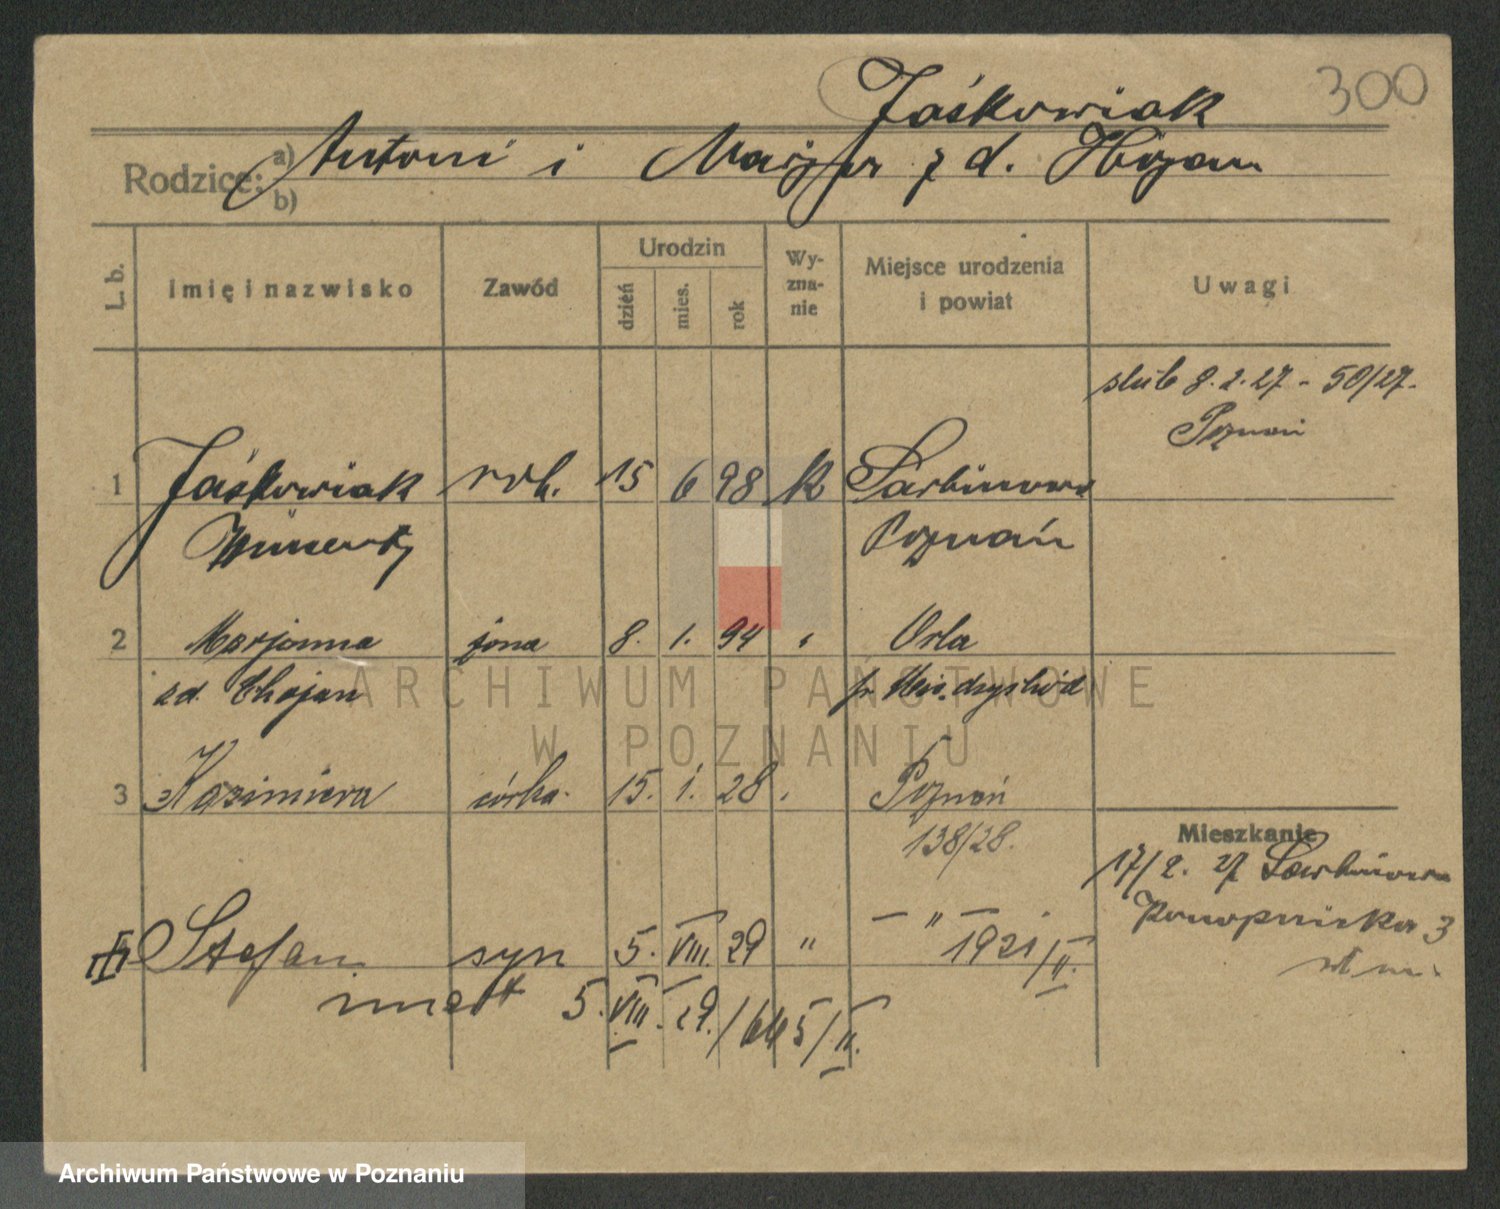 300
Jaśkowiak
Rodzice: a) Antoni i Marja z d. Hojan
b)
L. b. Imię i nazwisko Zawód Urodzin dzień mies. rok Wyznanie Miejsce urodzenia i powiat Uwagi
ślub 8.2.27 - 50/27.
Poznań
1 Jaśkowiak rob. 15 6 98 k Sarbinowo
Wincenty Poznań
2 Marjanna żona 8. 1. 94 Orla
z d. Chojan p.
3 Kazimiera córka 15. 1. 28 Poznań
138/28.
Mieszkanie
17/2. 27
3
III Stefan syn 5. VIII. 29 " — " —
1921/II.
5. VIII. 29. /665/II.
ARCHIWUM PAŃSTWOWE
W POZNANIU
Archiwum Państwowe w Poznaniu